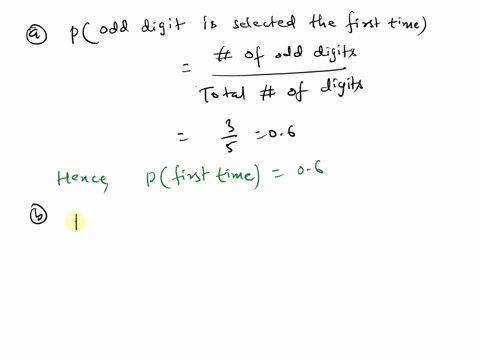 ⓐ P(odd digit is selected the first time)
= # of odd digits / Total # of digits
= 3/5 = 0.6
Hence, P(first time) = 0.6
ⓑ